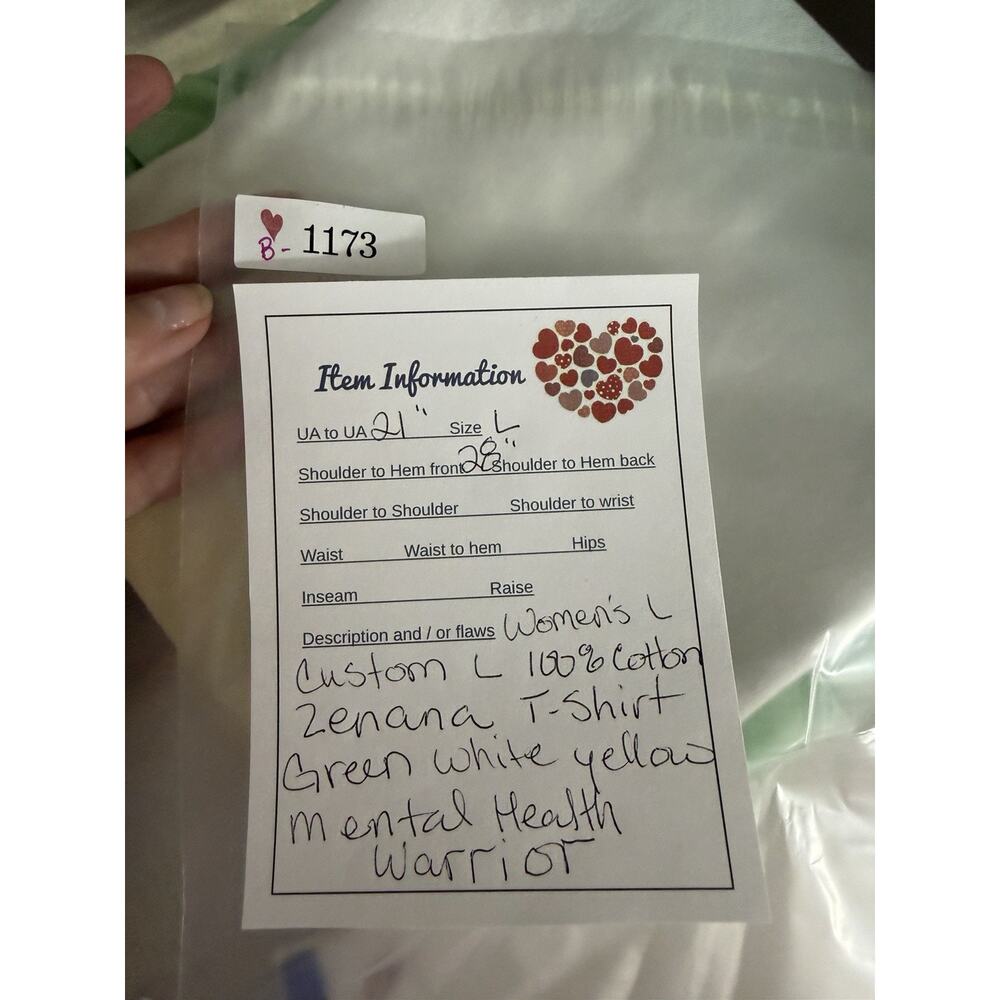 B- 1173
Item Information
UA to UA 21" Size L
Shoulder to Hem front 28" Shoulder to Hem back
Shoulder to Shoulder Shoulder to wrist
Waist Waist to hem Hips
Inseam Raise
Description and / or flaws Women's L
Custom L 100% Cotton
Zenana T-Shirt
Green white yellow
Mental Health
Warrior